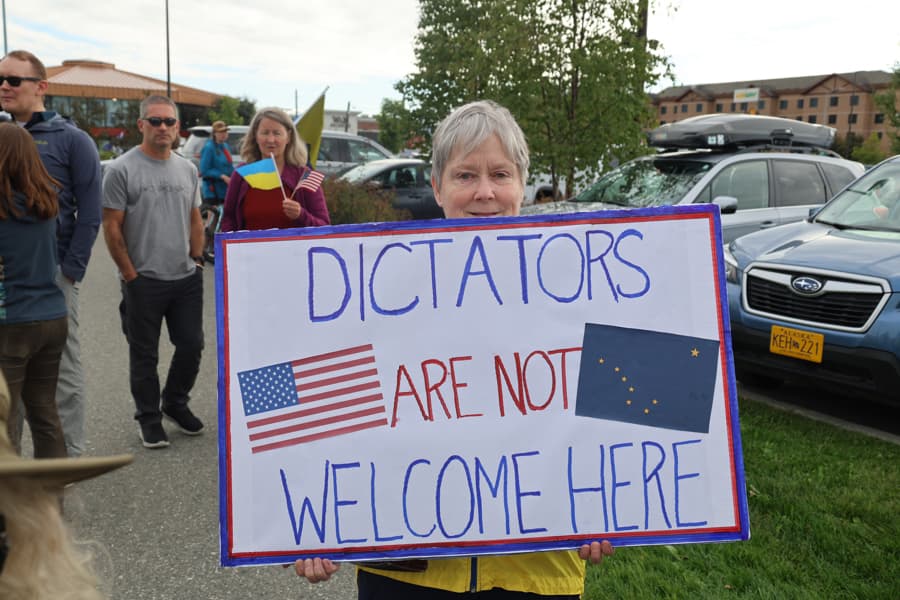 DICTATORS
ARE NOT
WELCOME HERE
ALASKA
KEH 221
SUBARU